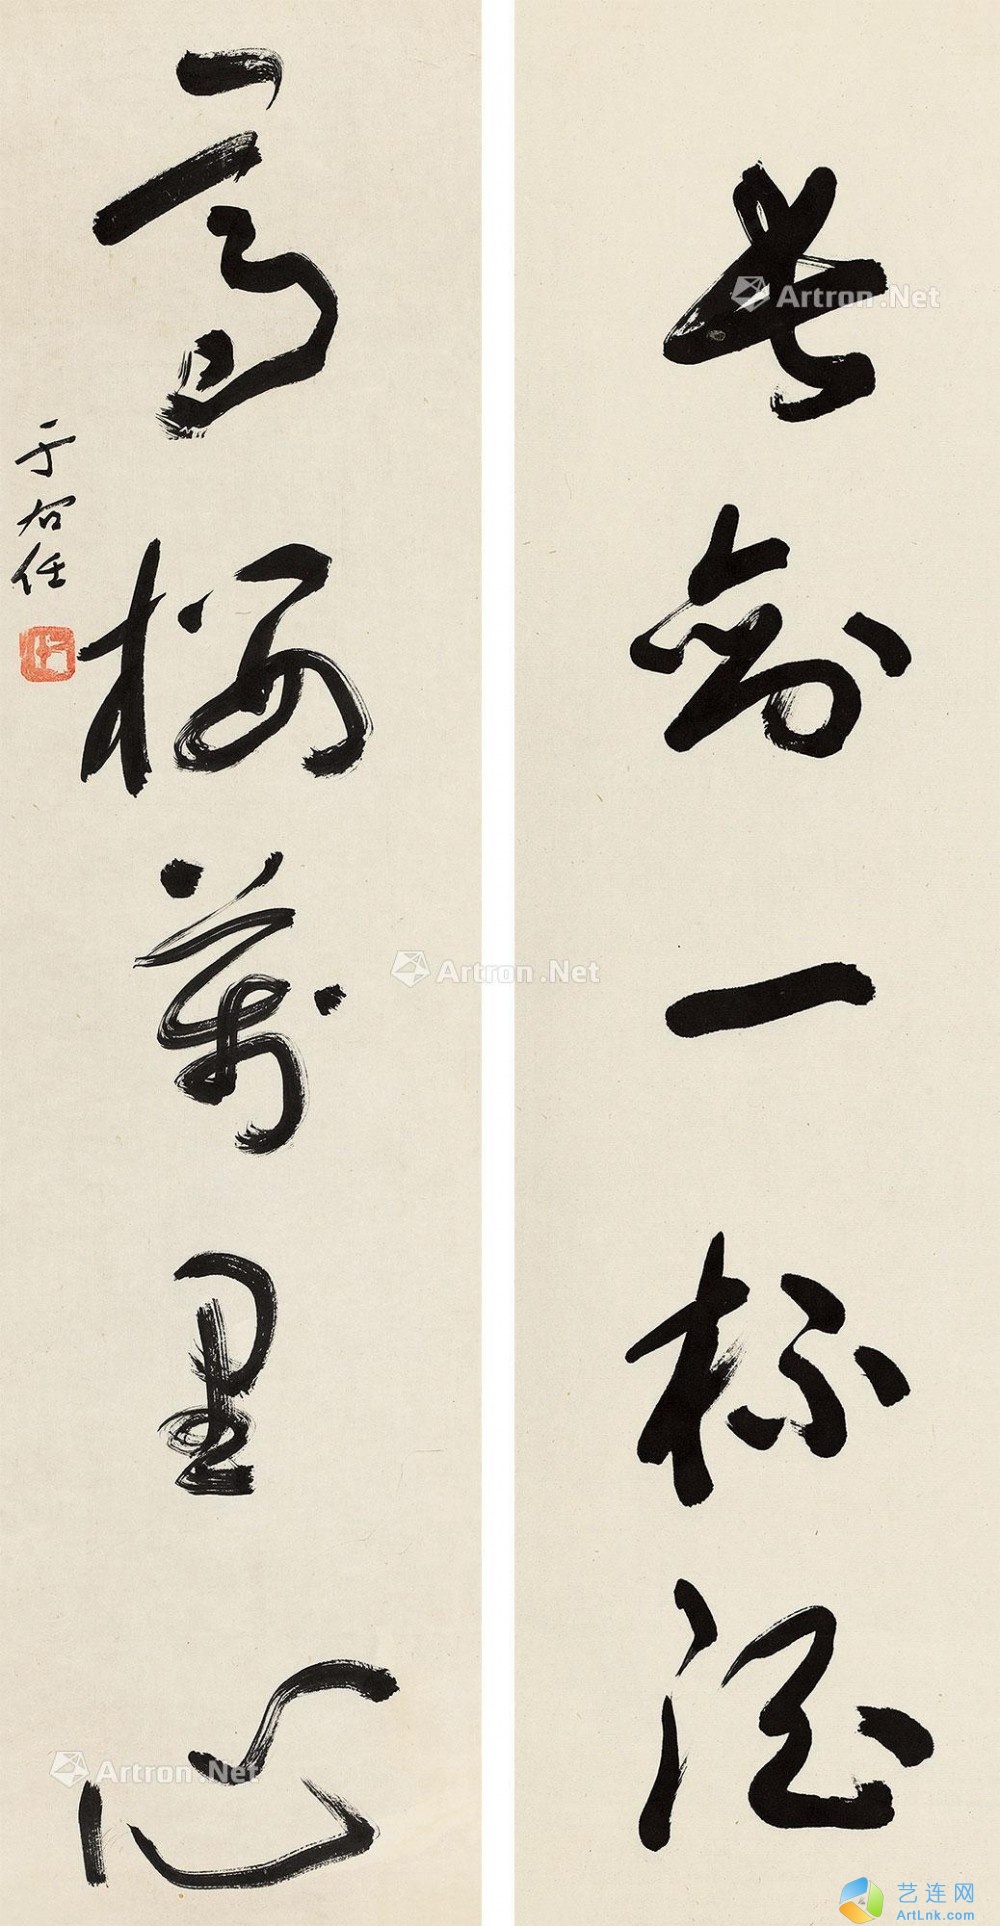 長劍一杯酒
高樓萬里心
于右任
Artron.Net
Artron.Net
Artron.Net
艺连网
ArtLnk.com